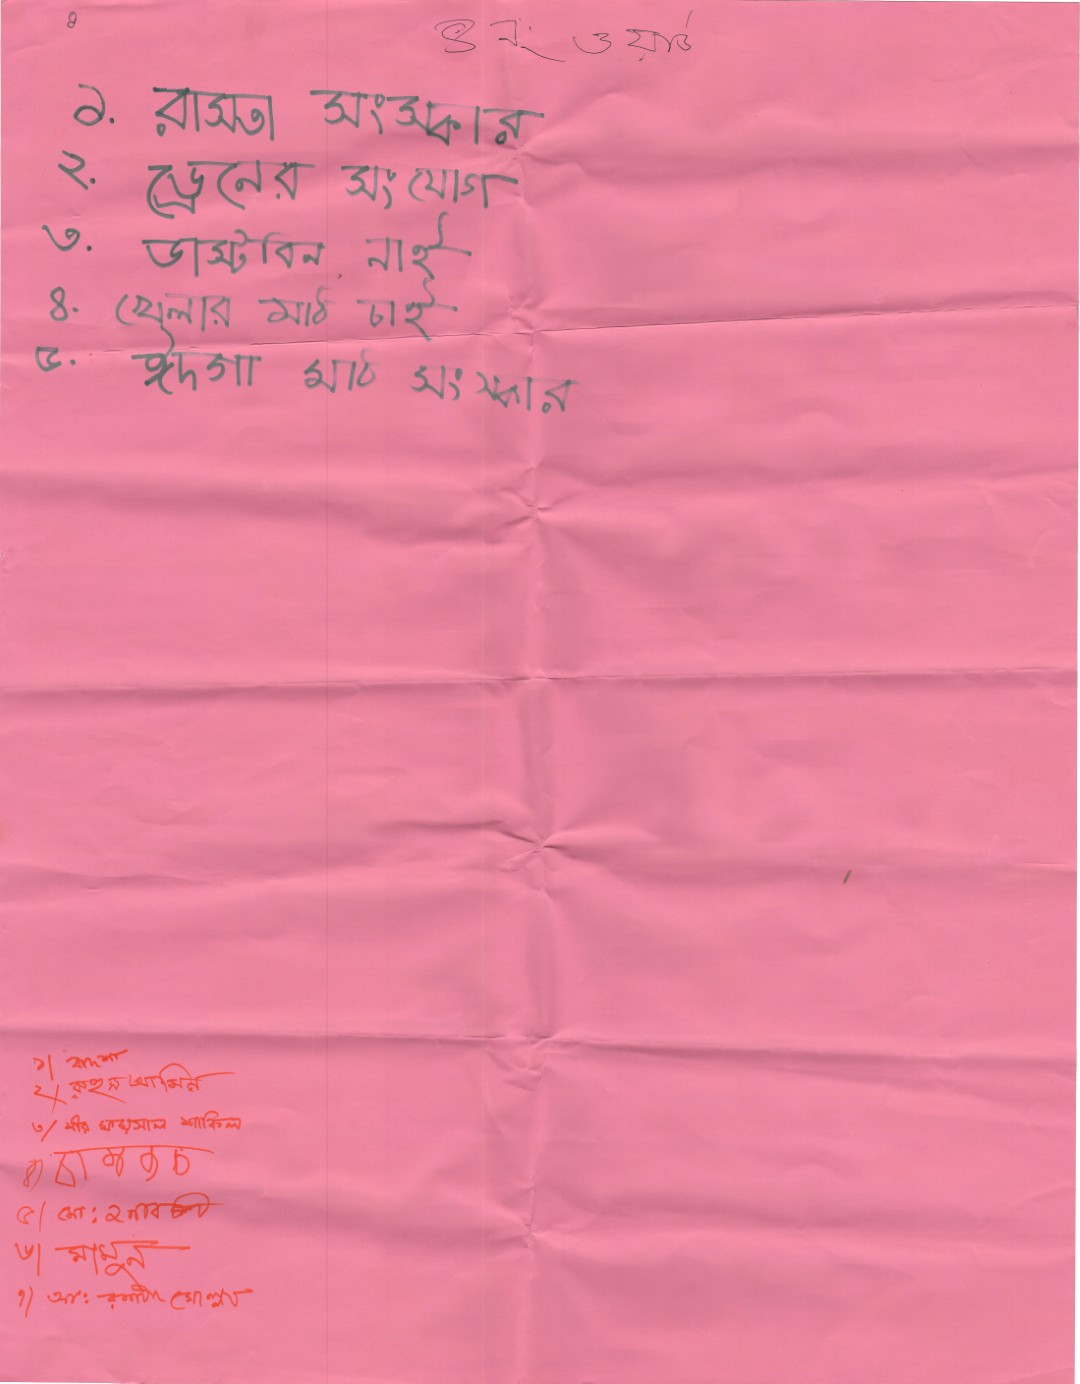 ৪
নং ওয়ার্ড
১. রাস্তা সংস্কার
২. ড্রেনের সংযোগ
৩. ডাস্টবিন নাই
৪. খেলার মাঠ চাই
৫. ঈদগা মাঠ সংস্কার
১। বাদশা
২/ রুহুল আমিন
৩/ মীর ফায়সাল শাকিল
৪)
৫। মো:
৬। মামুন
৭) আ: রশীদ মোল্লা